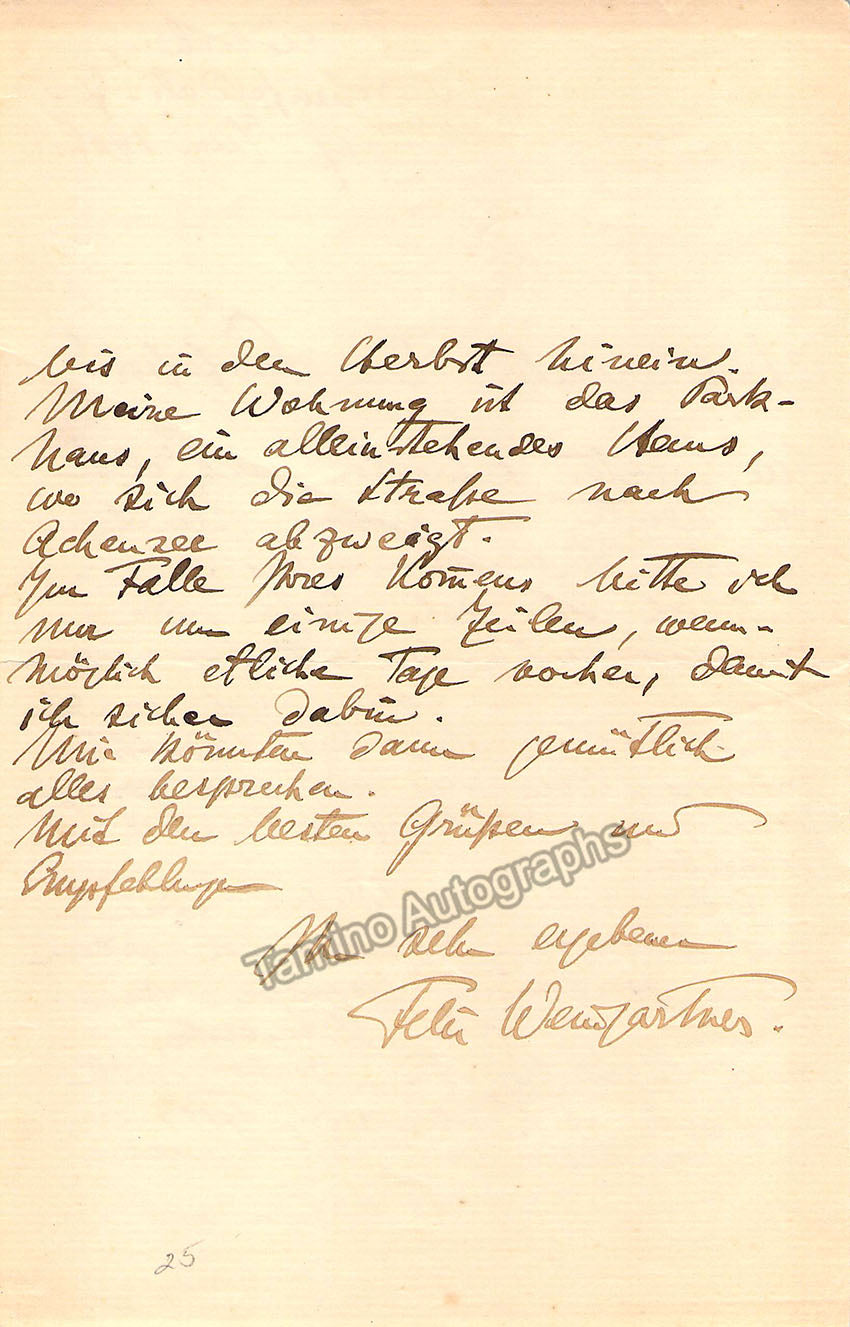 bis in den Herbst hinein.
Meine Wohnung ist das Park-
haus, ein alleinstehendes Haus,
wo sich die Straße nach
Achensee abzweigt.
Im Falle Ihres Kom̅ens bitte ich
nur um einige Zeilen, wenn-
möglich etliche Tage vorher, damit
ich sicher dabin.
Wir könnten dann gemütlich
alles besprechen.
Mit den besten Grüßen und
Empfehlungen
Ihr sehr ergebener
Felix Weingartner.
Tamino Autographs
25